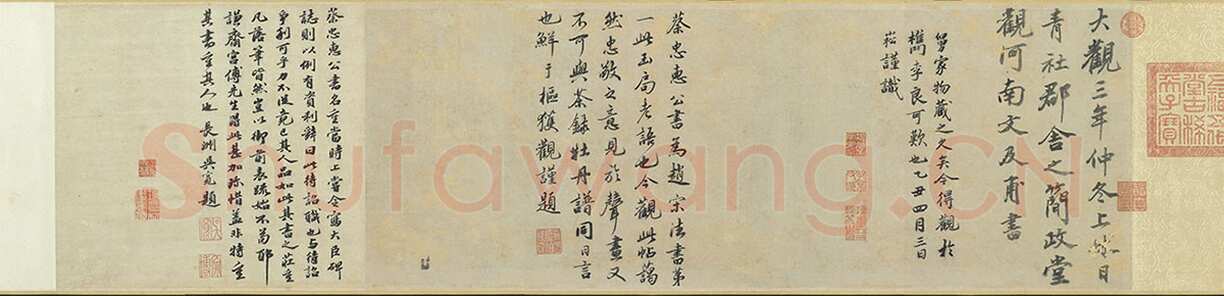 五福五代
堂古稀
天子寶
大觀三年仲冬上休日
青社郡舍之簡政堂
觀河南文及甫書
舅家物藏之久矣今得觀於
檇李良可歎也乙丑四月三日
崧謹識
蔡忠惠公書為趙宋法書第
一此玉局老語也今觀此帖藹
然忠敬之意見於聲畫又
不可與茶錄牡丹譜同日言
也鮮于樞獲觀謹題
蔡忠惠公書名重當時上嘗令寫大臣碑
誌則以例有資利辭曰此待詔職也与待詔
爭利可乎力不從竟已其人品如此其書之莊重
凡落筆皆然豈以御前表疏始不苟耶
謙齋宮傅先生購此甚加珍惜蓋非特重
其書重其人也 長洲吳寬題
Soufawang.CN